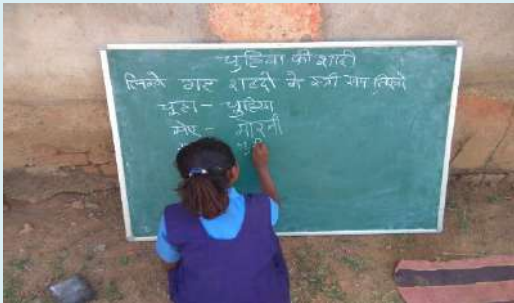 चुहिया की शादी
लिखे गए शब्दों के स्त्री रूप लिखो
चूहा - चुहिया
मोर - मोरनी